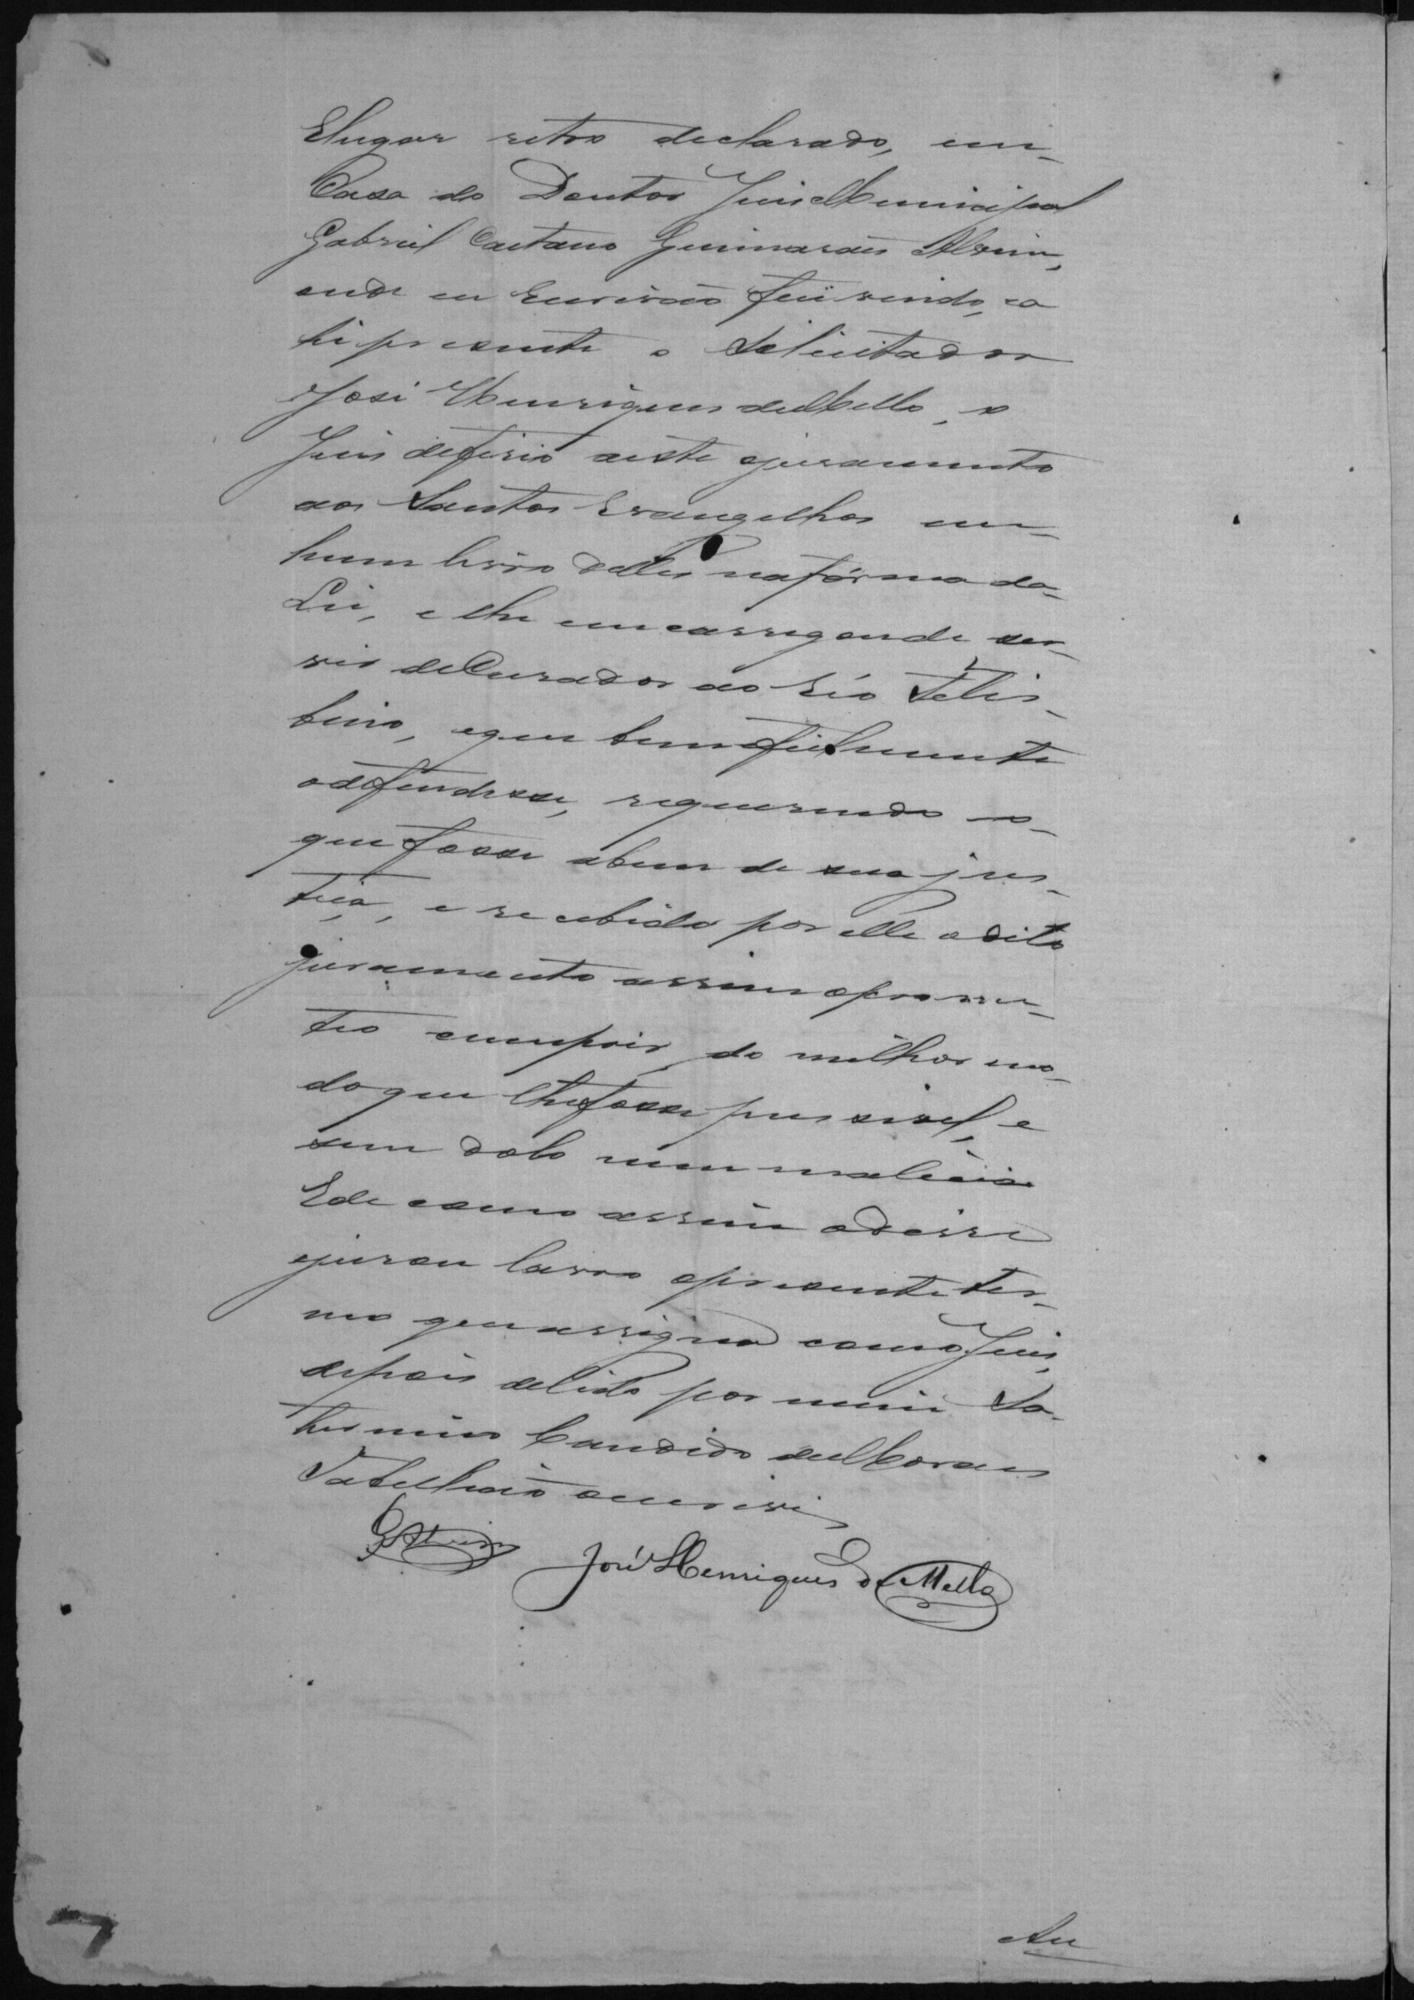 Elugar retro declarado, em
Casa do Doutor Juis Municipal
Gabriel Caetano Guimarães Alvim,
onde eu Escrivão fui vindo, ea
hi presente o Solicitador
José Henriques deMello, o
Juis deferio aeste ojuramento
aos Santos Evangelhos em
hum livro delles naforma da
Lei, e lhe emcarregoude ser
vir deCurador ao Réo Felis
bino, eque bemefielmente
odefendesse, requerendo o
que fosse abem de sua jus
tiça, e recebido por elle odito
juramento assim oprome
teo cumprir, do milhor mo
do que lhefosse pussivel, e
sem dolo nem malicia
Ede como assim odisse
ejurou lavro opresente ter
mo queassigna comoJuis,
depois delido por mim Sa
turnino Candido deMoraes
Tabelliaõ oescrivi
GAlvim José Henriques de Mello
Au